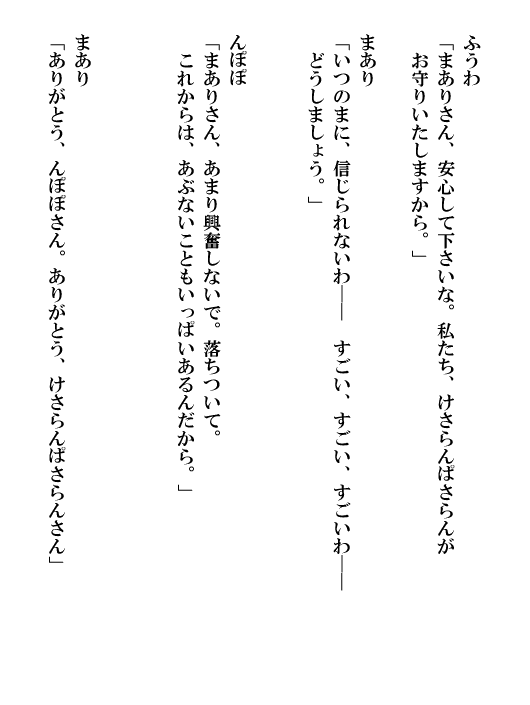 ふうわ
「まありさん、安心して下さいな。私たち、けさらんぱさらんが
お守りいたしますから。」
まあり
「いつのまに、信じられないわ――　すごい、すごい、すごいわ――
どうしましょう。」
んぽぽ
「まありさん、あまり興奮しないで。落ちついて。
これからは、あぶないこともいっぱいあるんだから。」
まあり
「ありがとう、んぽぽさん。ありがとう、けさらんぱさらんさん」